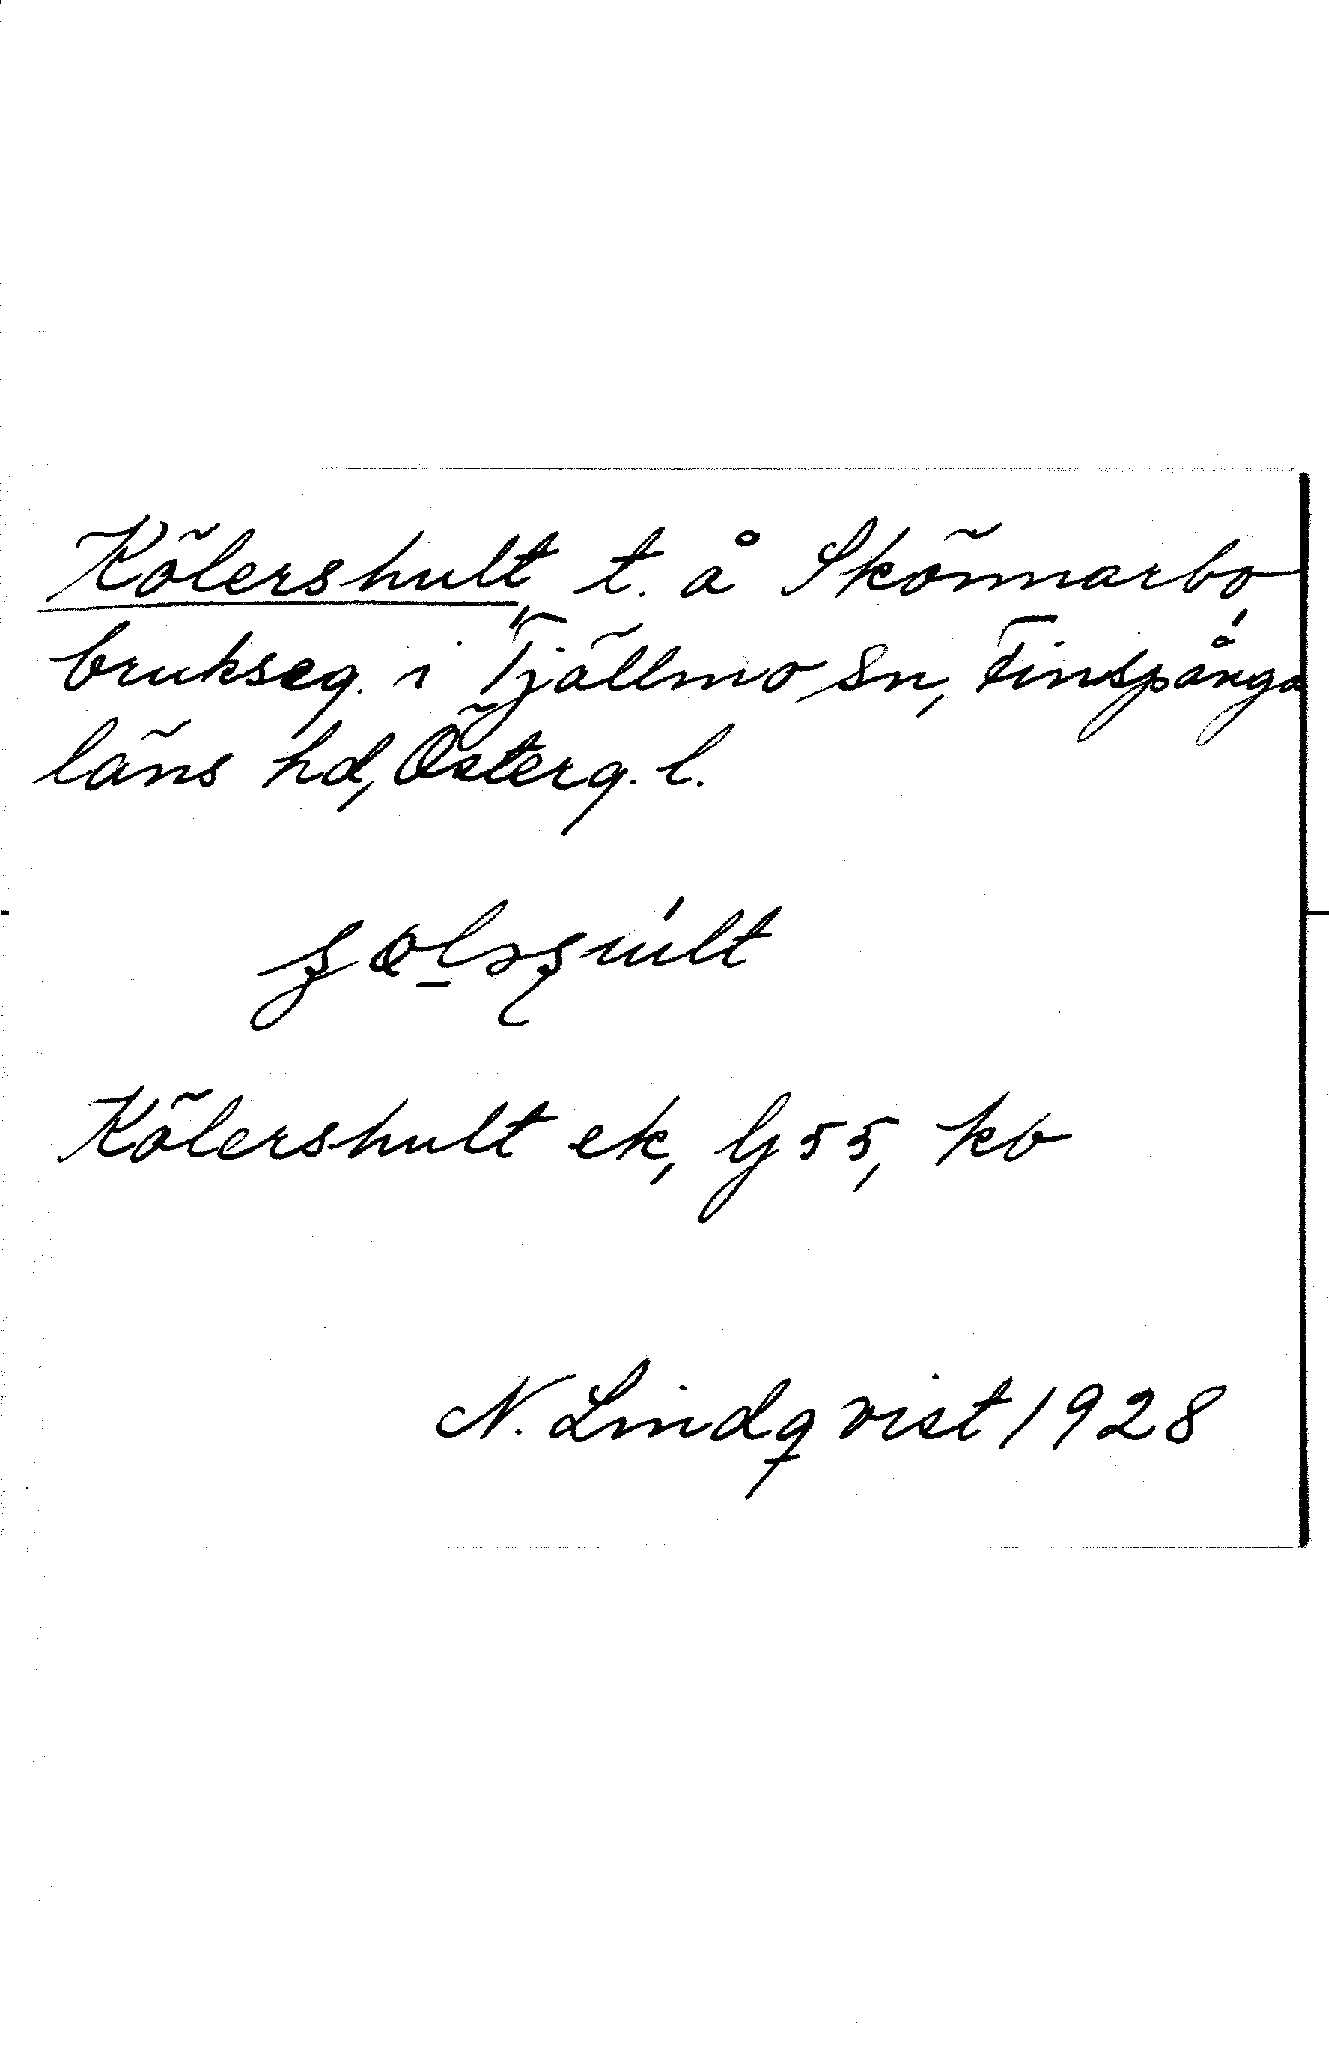 Kölershult, t. å Skönnarbo,
brukseg. i Tjällmo sn, Finspånga
läns hd, Österg. l.
Kölershult ek, Gj 55, kb
N. Lindqvist 1928